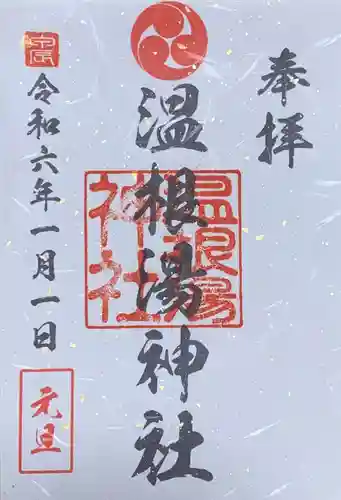 奉拝
温根湯神社
温根湯
神社
令和六年一月一日
元旦